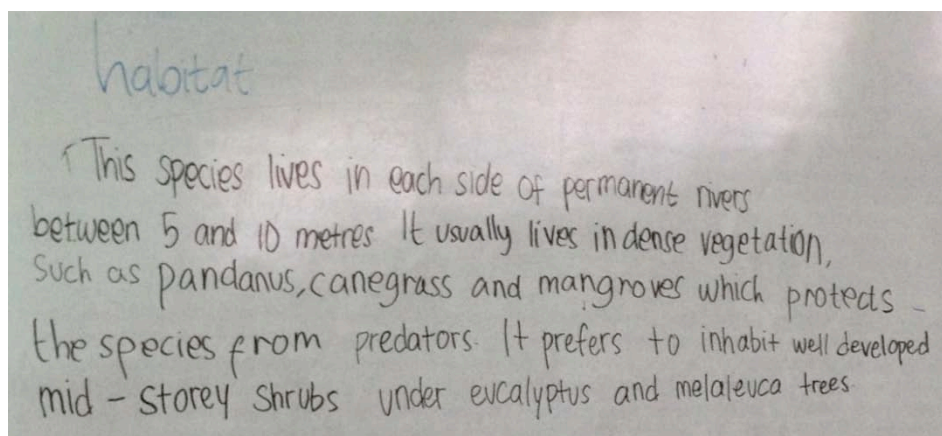 habitat
This species lives in each side of permanent rivers
between 5 and 10 metres It usually lives in dense vegetation,
Such as pandanus, canegrass and mangroves which protects
the species from predators. It prefers to inhabit well developed
mid - storey shrubs under eucalyptus and melaleuca trees.